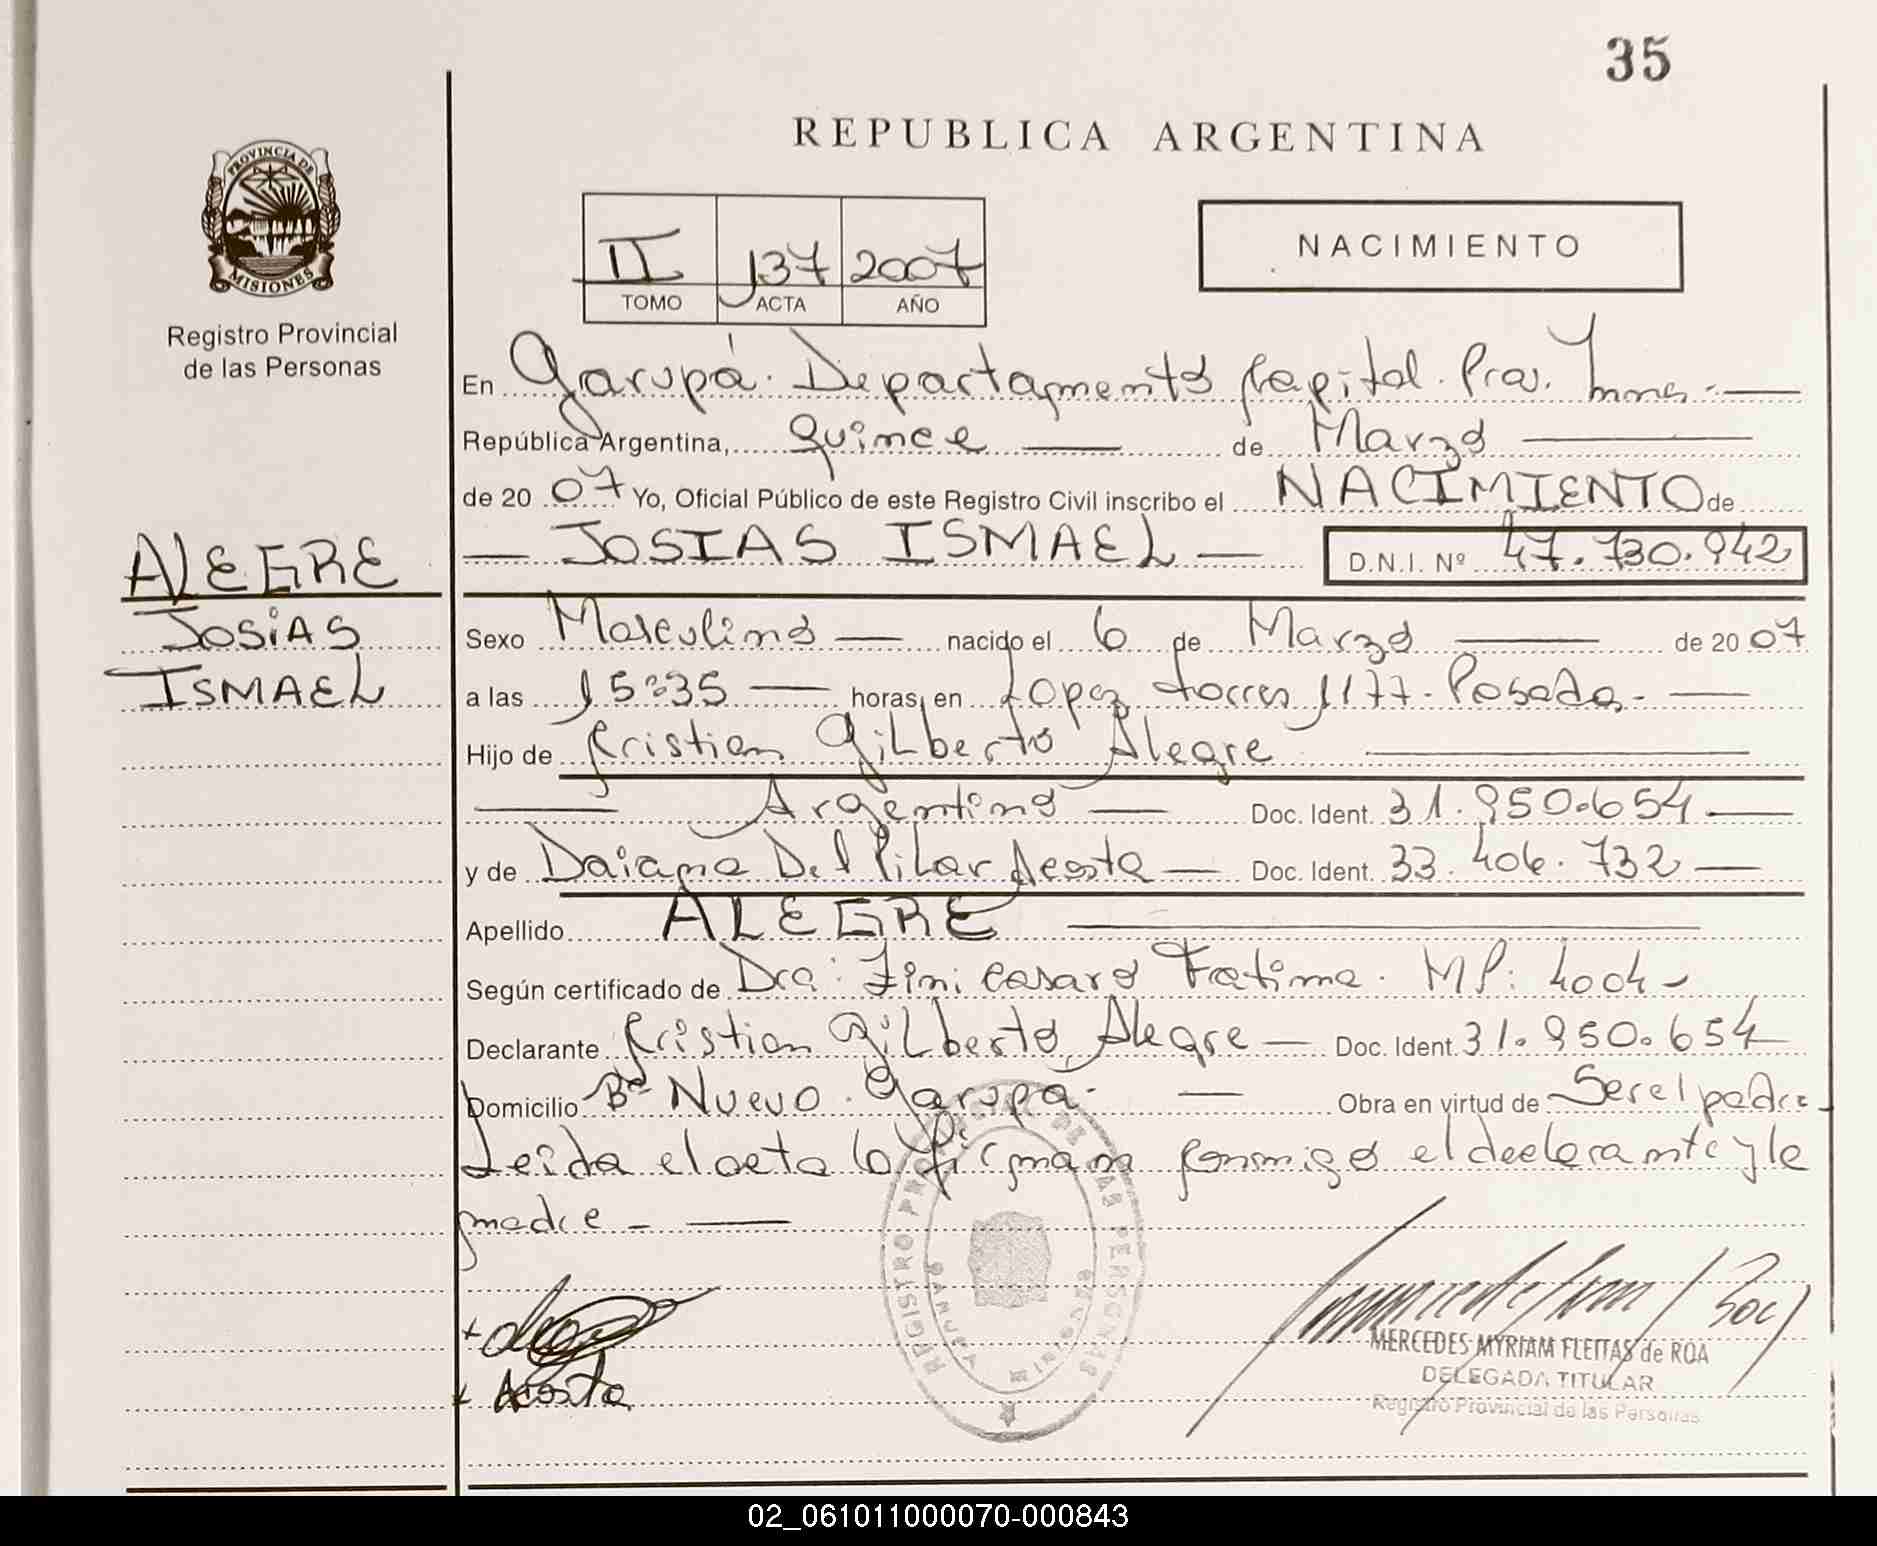 35
REPUBLICA ARGENTINA
PROVINCIA DE
MISIONES
Registro Provincial
de las Personas
II 137 2007
TOMO ACTA AÑO
NACIMIENTO
En Garupá. Departamento Capital. Prov. Mnes.
República Argentina, quince de Marzo
de 20 07 Yo, Oficial Público de este Registro Civil inscribo el NACIMIENTO de
JOSIAS ISMAEL D.N.I. Nº 47.730.942
ALEGRE
JOSIAS
ISMAEL
Sexo Masculino nacido el 6 de Marzo de 20 07
a las 15:35 horas, en Lopez Torres 1177. Posadas.
Hijo de Cristian Gilberto Alegre
Argentino Doc. Ident. 31.950.654
y de Daiana Del Pilar Acosta Doc. Ident. 33.406.732
Apellido ALEGRE
Según certificado de Dra: Cesaro Fatima. MP: 4004
Declarante Cristian Gilberto Alegre Doc. Ident. 31.950.654
Domicilio Bº Nuevo. Garupa. Obra en virtud de Ser el padre
Leida el acta la firman conmigo el declarante y la
madre
REGISTRO PROVINCIAL DE LAS PERSONAS
Acosta
MERCEDES MYRIAM FLEITAS de ROA
DELEGADA TITULAR
Registro Provincial de las Personas
02_061011000070-000843